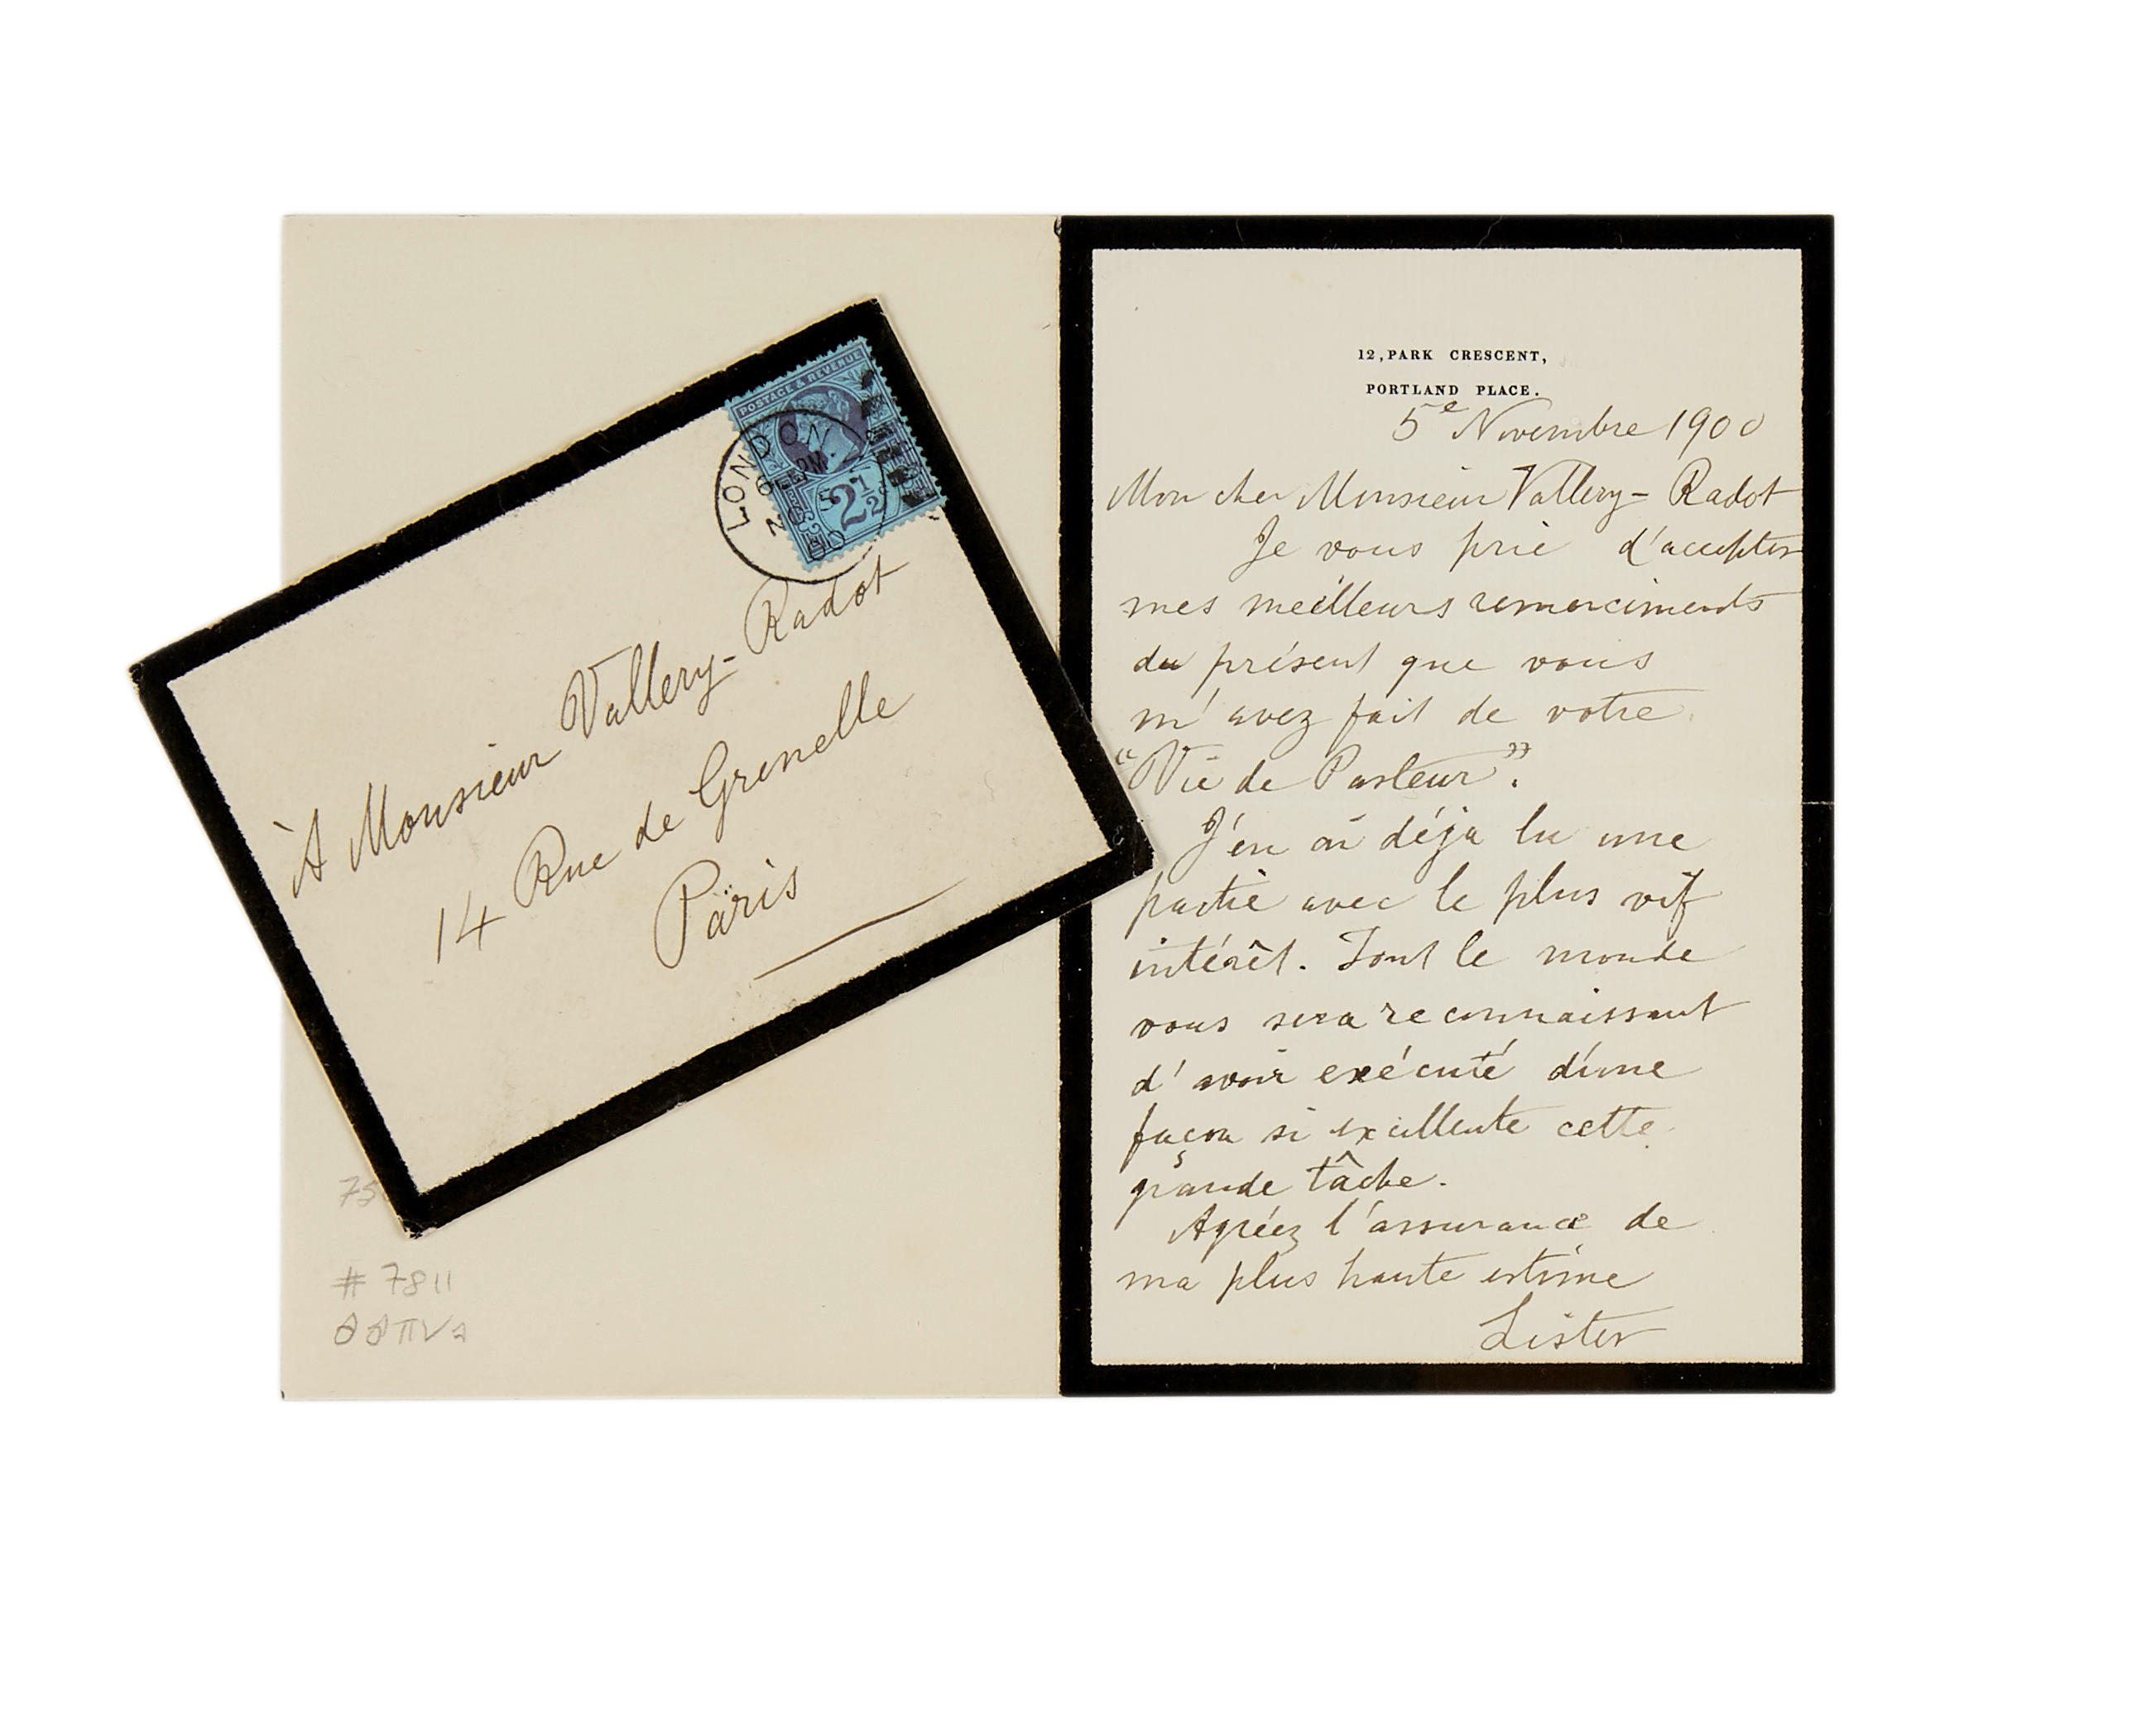 POSTAGE & REVENUE
LONDON
2½
À Monsieur Vallery-Radot
14 Rue de Grenelle
Paris
75
# 7811
12, PARK CRESCENT,
PORTLAND PLACE.
5e Novembre 1900
Mon cher Monsieur Vallery-Radot
Je vous prie d'accepter
mes meilleurs remerciments
du présent que vous
m'avez fait de votre
"Vie de Pasteur".
J'en ai déja lu une
partie avec le plus vif
intérêt. Tout le monde
vous sera reconnaissant
d'avoir exécuté d'une
façon si excellente cette
grande tâche.
Agréez l'assurance de
ma plus haute estime
Lister